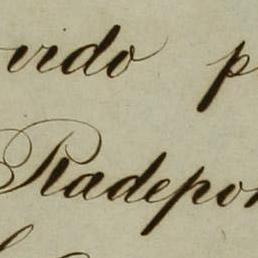 urdo p
Radepon